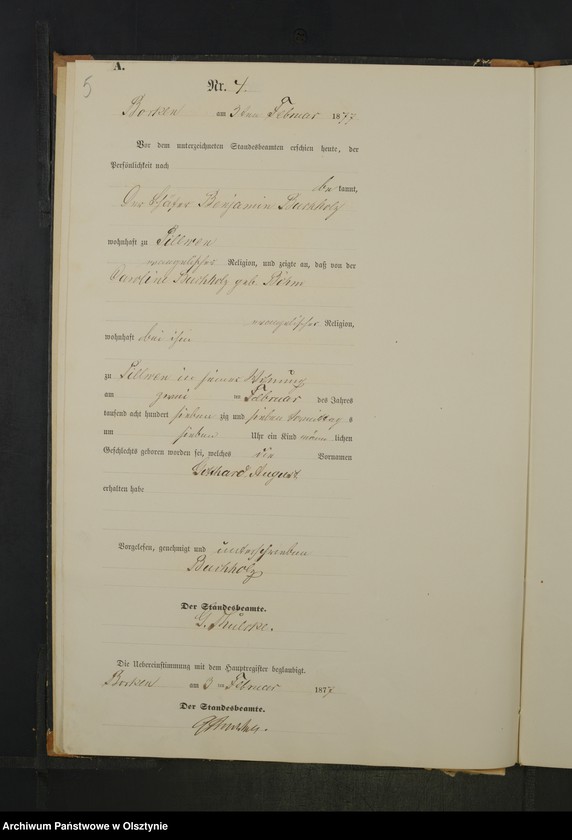 A.
5
Nr. 4.
Borken am 3ten Februar 1877
Vor dem unterzeichneten Standesbeamten erschien heute, der
Persönlichkeit nach
be kannt,
Der Schäfer Benjamin Buchholz
wohnhaft zu
evangelischer Religion, und zeigte an, daß von der
Caroline Buchholz geb. Böhm
evangelischer Religion,
wohnhaft bei ihm
zu in seiner Wohnung
am zwei ten Februar des Jahres
tausend acht hundert sieben zig und sieben Vormittags
um sieben Uhr ein Kind männ lichen
Geschlechts geboren worden sei, welches die Vornamen
August
erhalten habe
Vorgelesen, genehmigt und unterschrieben
Buchholz
Der Standesbeamte.
Die Uebereinstimmung mit dem Hauptregister beglaubigt.
Borken am 3 Februar 1877
Der Standesbeamte.
Archiwum Państwowe w Olsztynie